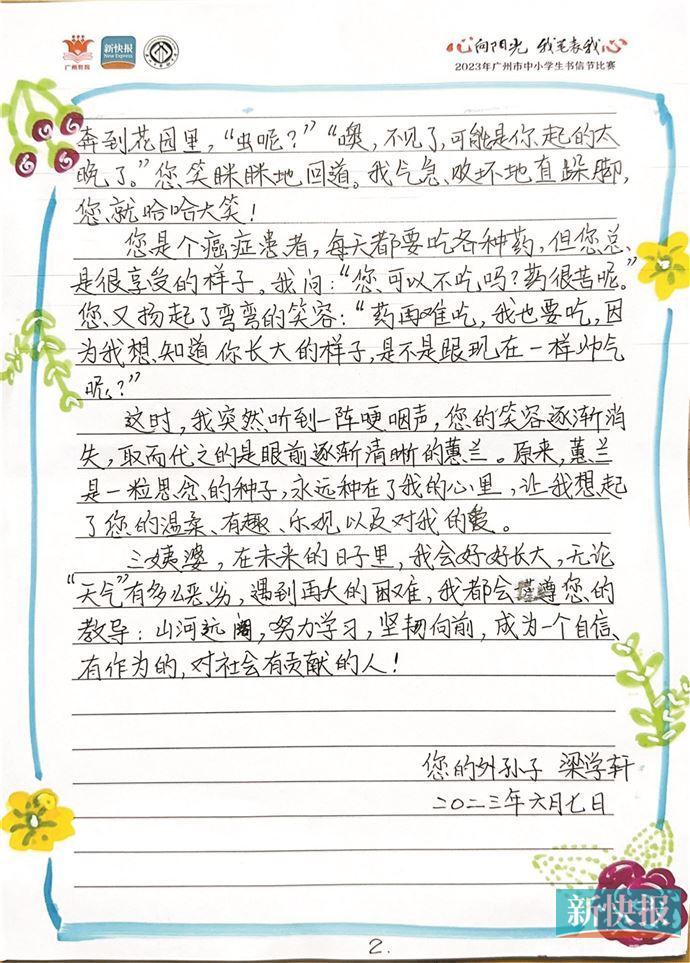 广州教育
新快报
New Express
心向阳光 我笔表我心
2023年广州市中小学生书信节比赛
奔到花园里，“虫呢？”“噢，不见了，可能是你起的太
晚了。”您笑眯眯地回道。我气急败坏地直跺脚，
您就哈哈大笑！
您是个癌症患者，每天都要吃各种药，但您总
是很享受的样子。我问：“您可以不吃吗？药很苦呢。”
您又扬起了弯弯的笑容：“药再难吃，我也要吃，因
为我想知道你长大的样子，是不是跟现在一样帅气
呢？”
这时，我突然听到一阵哽咽声，您的笑容逐渐消
失，取而代之的是眼前逐渐清晰的蕙兰。原来，蕙兰
是一粒思念的种子，永远种在了我的心里，让我想起
了您的温柔、有趣、乐观以及对我的爱。
三姨婆，在未来的日子里，我会好好长大，无论
“天气”有多么恶劣，遇到再大的困难，我都会谨遵您的
教导：山河远阔，努力学习，坚韧向前，成为一个自信、
有作为的，对社会有贡献的人！
您的外孙子 梁学轩
二〇二三年六月七日
新快报
2.